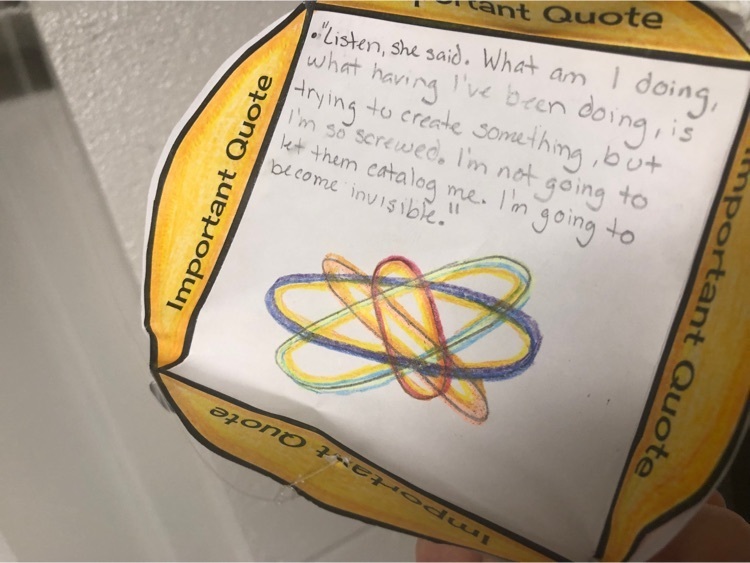 ortant Quote
"Listen, she said. What am I doing,
what having I've been doing, is
trying to create something, but
I'm so screwed. I'm not going to
let them catalog me. I'm going to
become invisible."
Important Quote
Important Quote
Important Quote